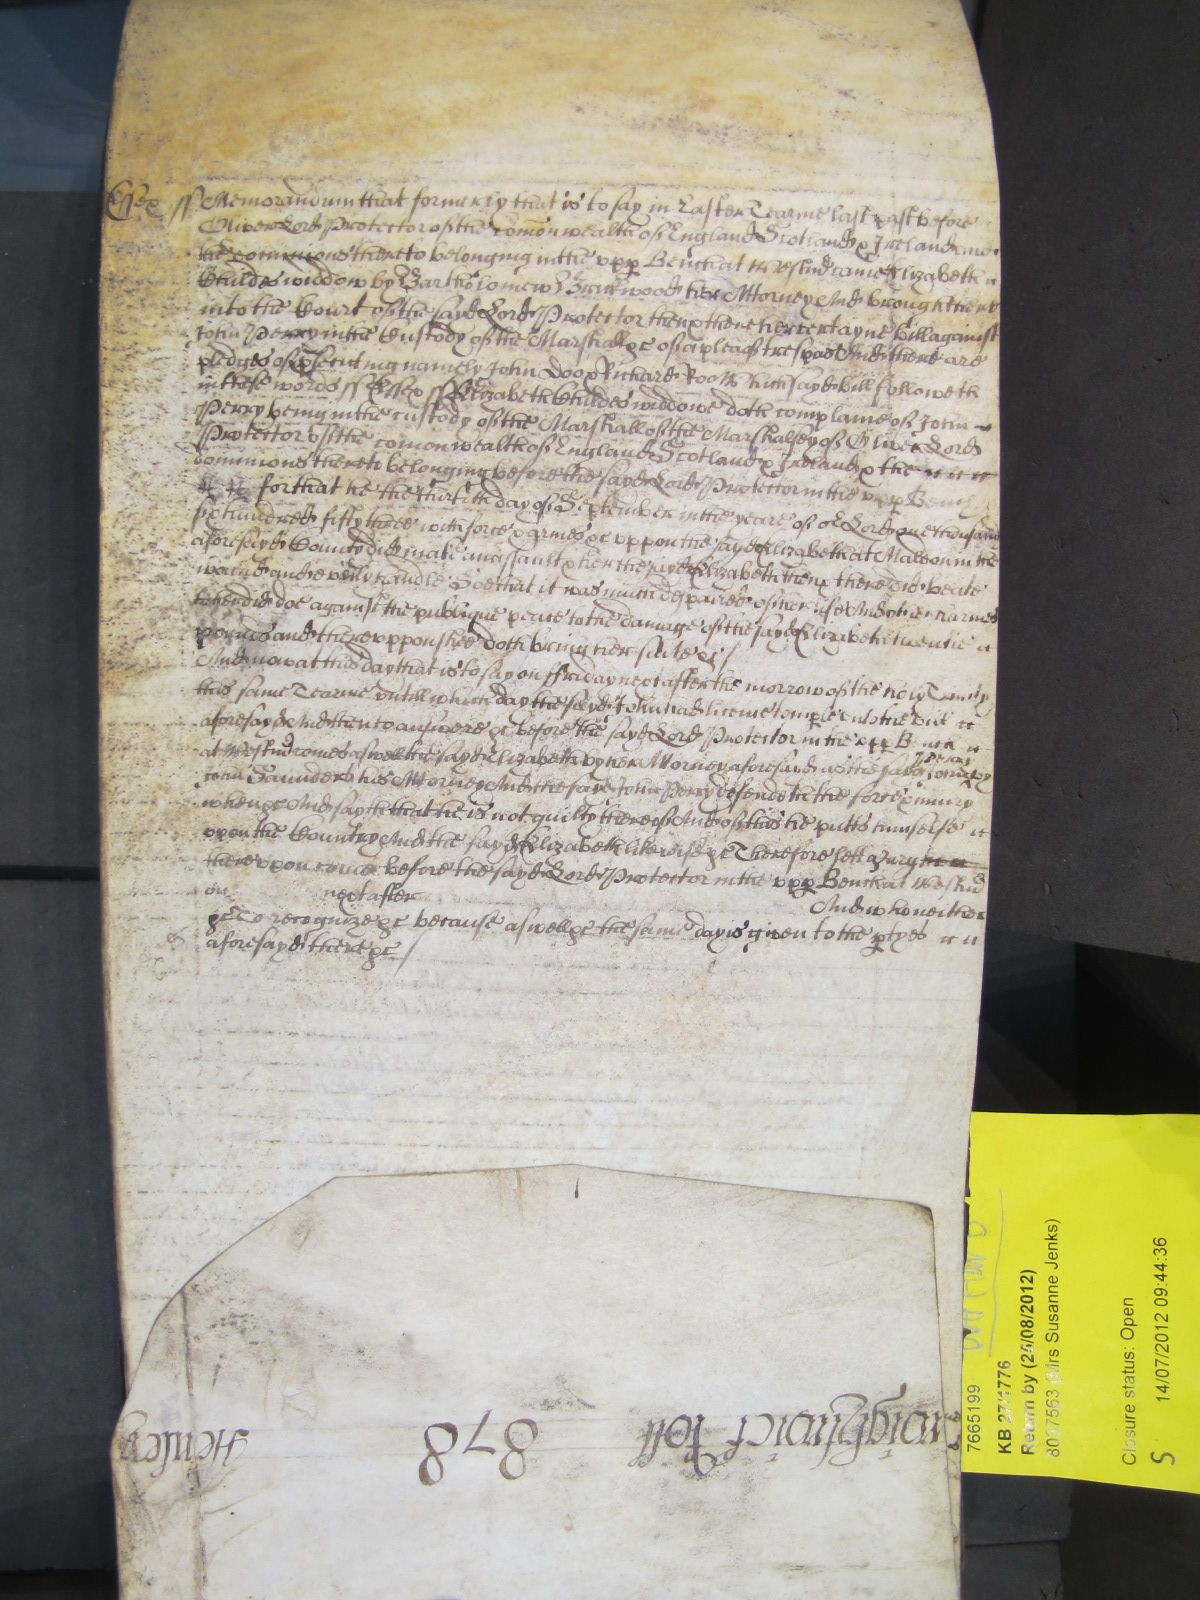 Essex ss Memorandum that formerly that is to say in Easter Tearme last past before
Oliver Lord Protector of the comonwealth of England Scotland & Ireland and
the dominions thereto belonging in the upp Bench at Westm came Elizabeth
Childes widdow by Bartholomew Brickwood her Attorney And brought here
into the Court of the sayd Lord Protector then & there her certayne bill against
John Perry in the Custody of the Marshall &c of a plea of trespas And there are
pledges of psecuting namely John Doo & Richard Roo Which sayd bill followeth
in these words ss Essex ss Elizabeth Childes widdowe doth complaine of John
Perry being in the custody of the Marshall of the Marshalsey of Oliver Lord
Protector of the comonwealth of England Scotland & Ireland & the
dominions thereto belonging before the sayd Lord Protector in the upp Bench
for that he the thirtith day of September in the yeare of or Lord one thousand
six hundred fifty three with force & armes &c uppon the sayd Elizabeth at Maldon in the
aforesayd County did make an assault & her the sayd Elizabeth then & there did beate
wound and evilly handle Soe that it was much despaired of her life And other harmes
to her did doe against the publique peace to the damage of the sayd Elizabeth twentie
pounds and thereuppon shee doth bring her suite &c /
And now at this day that is to say on ffriday next after the morrow of the holy Trinity
this same Tearme untill which day the sayd John had licence to imple unto the bill
aforesayd And then to answere &c before the sayd Lord Protector in the upp Bench
at Westm comes aswell the sayd Elizabeth by her Attorney aforesayd as the sayd John Perry by
John Saunders his Attorney And the sayd John Perry defendeth the force & iniury
when &c And sayth that he is not guilty thereof And of this he putts himselfe
upon the Country And the sayd Elizabeth likewise &c Therefore lett a Jury
thereupon come before the sayd Lord Protector in the upp Bench at Westm
on next after And who neither
&c To recognize &c because aswell &c the same day is given to the ptyes
aforesayd there &c /
Henley 878 ffoll
7665199
KB 27/1776
Return by (25/08/2012)
8037563 (Mrs Susanne Jenks)
Closure status: Open
S 14/07/2012 09:44:36